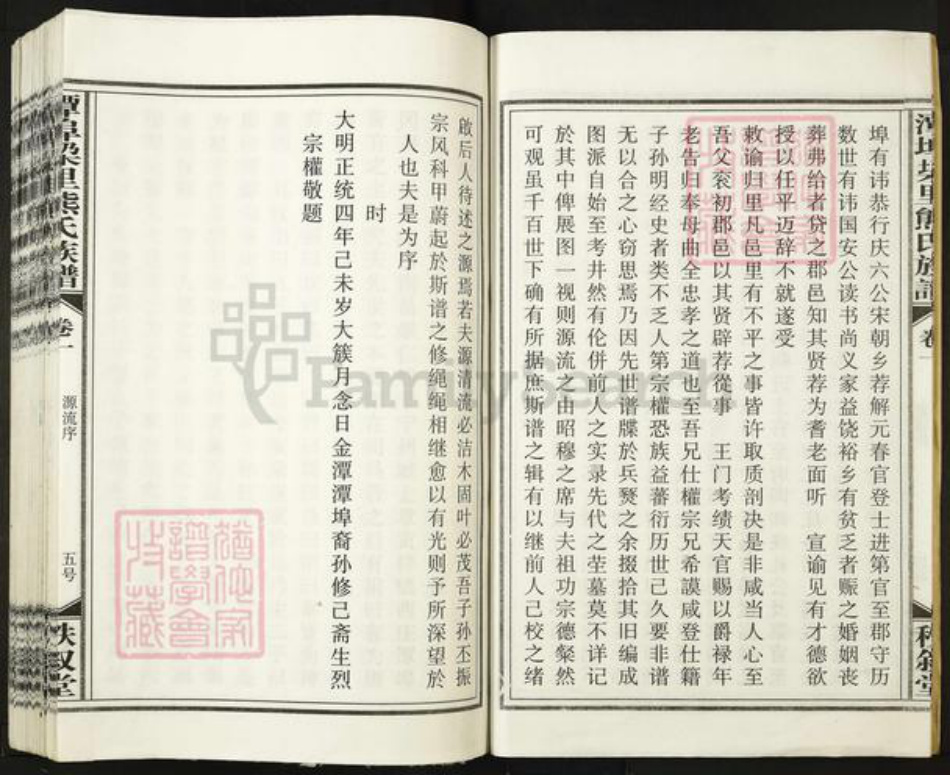 埠有讳恭行庆六公宋朝乡荐解元春官登士进第官至郡守历
数世有讳国安公读书尚义家益饶裕乡有贫乏者赈之婚姻丧
葬弗给者贷之郡邑知其贤荐为耆老面听 宣谕见有才德欲
授以任平迈辞不就遂受
敕谕归里凡邑里有不平之事皆许取质剖决是非咸当人心至
吾父衮初郡邑以其贤辟荐從事 王门考绩天官赐以爵禄年
老告归奉母曲全忠孝之道也至吾兄仕權宗兄希謨咸登仕籍
子孙明经史者类不乏人第宗權恐族益蕃衍历世己久要非谱
无以合之心窃思焉乃因先世谱牒於兵燹之余掇拾其旧编成
图派自始至考井然有伦併前人之实录先代之茔墓莫不详记
於其中俾展图一视则源流之由昭穆之席与夫祖功宗德粲然
可观虽千百世下确有所据庶斯谱之辑有以继前人己校之绪
啟后人待述之源焉若夫源清流必洁木固叶必茂吾子孙丕振
宗风科甲蔚起於斯谱之修绳绳相继愈以有光则予所深望於
人也夫是为序
时
大明正统四年己未岁大簇月念日金潭潭埠裔孙修己斋生烈
宗權敬题
潭埠梁里熊氏族譜
卷一
源流序
五号
秩叙堂
FamilySearch